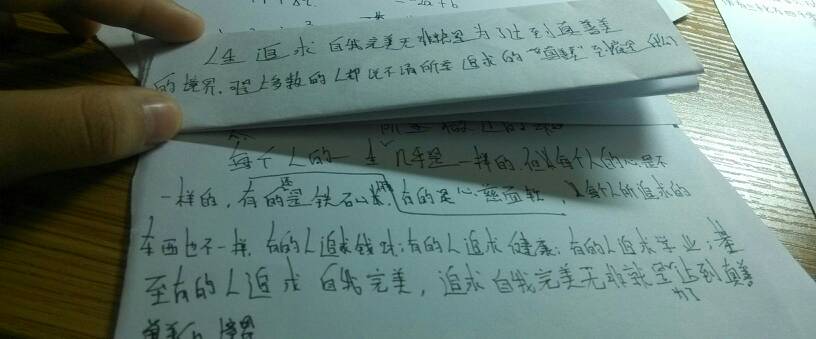 人追求自我完美无非就是为了达到真善美
的境界,现大多数的人都说不清所要追求的"真善美"到底是什么
每个人的一生几乎是一样的,但每个人的心是不
一样的,有的是铁石心肠,有的是心慈面软,每个人所追求的
东西也不一样,有的人追求钱财;有的人追求健康;有的人追求学业;甚
至有的人追求自我完美,追求自我完美无非就是达到真善
美的境界